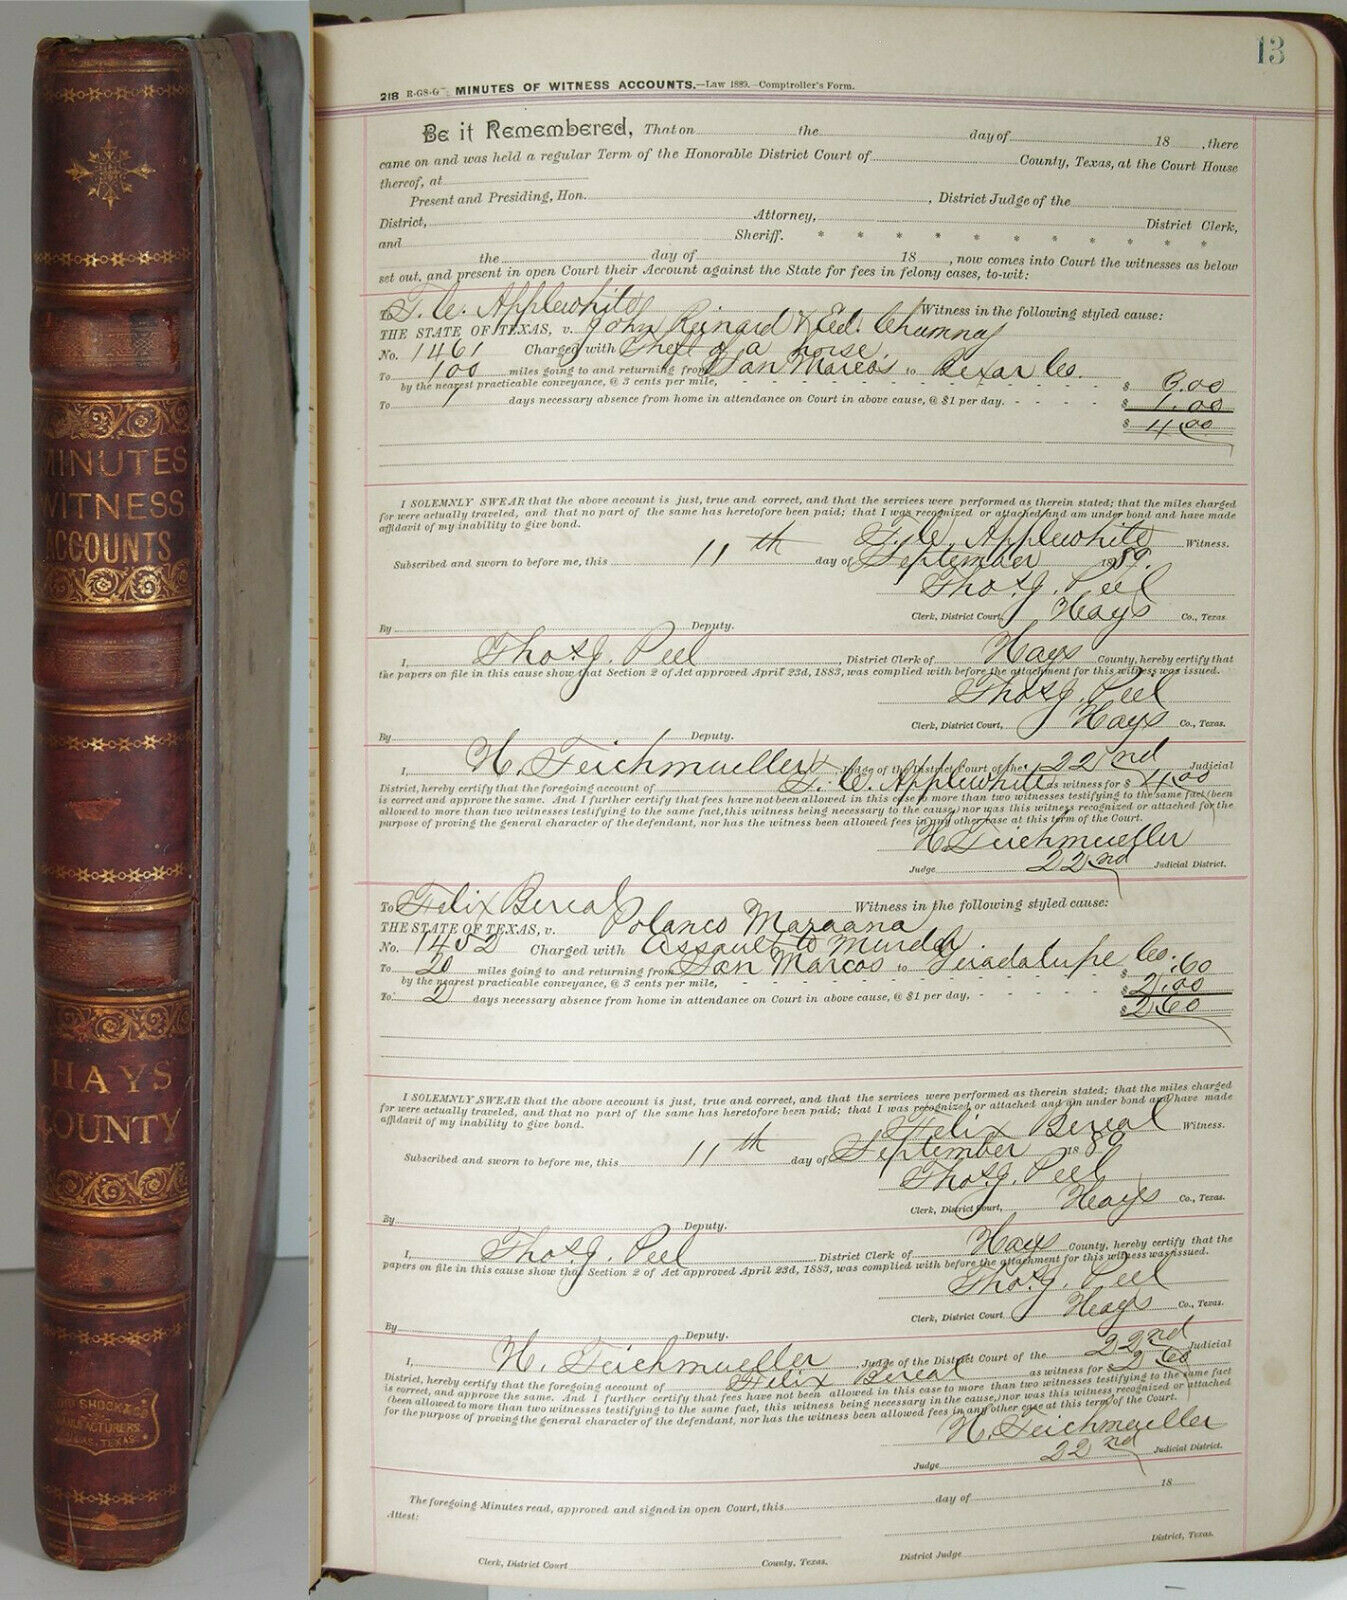 MINUTES
WITNESS
ACCOUNTS
HAYS
COUNTY
MANUFACTURERS
TEXAS
13
218 R-GS-G MINUTES OF WITNESS ACCOUNTS.—Law 1889.—Comptroller's Form.
Be it Remembered, That on the day of 18 , there
came on and was held a regular Term of the Honorable District Court of County, Texas, at the Court House
thereof, at
Present and Presiding, Hon. , District Judge of the
District, Attorney, District Clerk,
and Sheriff. * * * * * * * * * * *
the day of 18 , now comes into Court the witnesses as below
set out, and present in open Court their Account against the State for fees in felony cases, to-wit:
To Applewhite Witness in the following styled cause:
THE STATE OF TEXAS, v. John Reinard & Ed. Chumney
No. 1461 Charged with Theft of a horse.
To 100 miles going to and returning from San Marcos to Bexar Co.
by the nearest practicable conveyance, @ 3 cents per mile, $ 3.00
To 1 days necessary absence from home in attendance on Court in above cause, @ $1 per day. $ 1.00
$ 4.00
I SOLEMNLY SWEAR that the above account is just, true and correct, and that the services were performed as therein stated; that the miles charged
for were actually traveled, and that no part of the same has heretofore been paid; that I was recognized or attached and am under bond and have made
affidavit of my inability to give bond.
Applewhite Witness.
Subscribed and sworn to before me, this 11th day of September 1889.
Thos. J. Peel
Clerk, District Court, Hays Co., Texas.
By Deputy.
I, Thos J. Peel , District Clerk of Hays County, hereby certify that
the papers on file in this cause show that Section 2 of Act approved April 23d, 1883, was complied with before the attachment for this witness was issued.
Thos J. Peel
Clerk, District Court, Hays Co., Texas.
By Deputy.
I, H. Teichmueller , Judge of the District Court of the 22nd Judicial
District, hereby certify the foregoing account of Applewhite as witness for $ 4.00
is correct and approve the same. And I further certify that fees have not been allowed in this case to more than two witnesses testifying to the same fact, (been
allowed to more than two witnesses testifying to the same fact, this witness being necessary to the cause,) nor was this witness recognized or attached for the
purpose of proving the general character of the defendant, nor has the witness been allowed fees in any other case at this term of the Court.
H. Teichmueller
Judge 22nd Judicial District.
To Felix Bereal Witness in the following styled cause:
THE STATE OF TEXAS, v. Polanco
No. 1452 Charged with Assault to Murder.
To 20 miles going to and returning from San Marcos to Guadalupe Co.
by the nearest practicable conveyance, @ 3 cents per mile, $ .60
To 2 days necessary absence from home in attendance on Court in above cause, @ $1 per day, $ 2.00
$ 2.60
I SOLEMNLY SWEAR that the above account is just, true and correct, and that the services were performed as therein stated; that the miles charged
for were actually traveled, and that no part of the same has heretofore been paid; that I was recognized or attached and am under bond and have made
affidavit of my inability to give bond.
Felix Bereal Witness.
Subscribed and sworn to before me, this 11th day of September 1889
Thos. J. Peel
Clerk, District Court, Hays Co., Texas.
By Deputy.
I, Thos. J. Peel District Clerk of Hays County, hereby certify that the
papers on file in this cause show that Section 2 of Act approved April 23d, 1883, was complied with before the attachment for this witness was issued.
Thos. J. Peel
Clerk, District Court, Hays Co., Texas.
By Deputy.
I, H. Teichmueller , Judge of the District Court of the 22nd Judicial
District, hereby certify that the foregoing account of Felix Bereal as witness for $ 2.60
is correct, and approve the same. And I further certify that fees have not been allowed in this case to more than two witnesses testifying to the same fact
(been allowed to more than two witnesses testifying to the same fact, this witness being necessary in the cause,) nor was this witness recognized or attached
for the purpose of proving the general character of the defendant, nor has the witness been allowed fees in any other case at this term of the Court.
H. Teichmueller
Judge 22nd Judicial District.
The foregoing Minutes read, approved and signed in open Court, this day of 18
Attest:
District, Texas.
Clerk, District Court County, Texas. District Judge